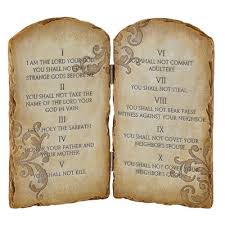 I
I AM THE LORD YOUR GOD
YOU SHALL NOT HAVE
STRANGE GODS BEFORE ME
II
YOU SHALL NOT TAKE THE
NAME OF THE LORD YOUR
GOD IN VAIN
III
KEEP HOLY THE SABBATH
IV
HONOR YOUR FATHER AND
YOUR MOTHER
V
YOU SHALL NOT KILL
VI
YOU SHALL NOT COMMIT
ADULTERY
VII
YOU SHALL NOT STEAL
VIII
YOU SHALL NOT BEAR FALSE
WITNESS AGAINST YOUR NEIGHBOR
IX
YOU SHALL NOT COVET YOUR
NEIGHBOR'S SPOUSE
X
YOU SHALL NOT COVET YOUR
NEIGHBOR'S GOODS